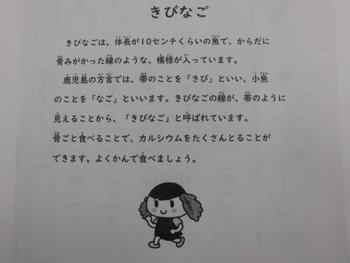 きびなご
きびなごは、体長が10センチくらいの魚で、からだに
青みがかった線のような、模様が入っています。
鹿児島の方言では、帯のことを「きび」といい、小魚
のことを「なご」といいます。きびなごの線が、帯のように
見えることから、「きびなご」と呼ばれています。
骨ごと食べることで、カルシウムをたくさんとることが
できます。よくかんで食べましょう。